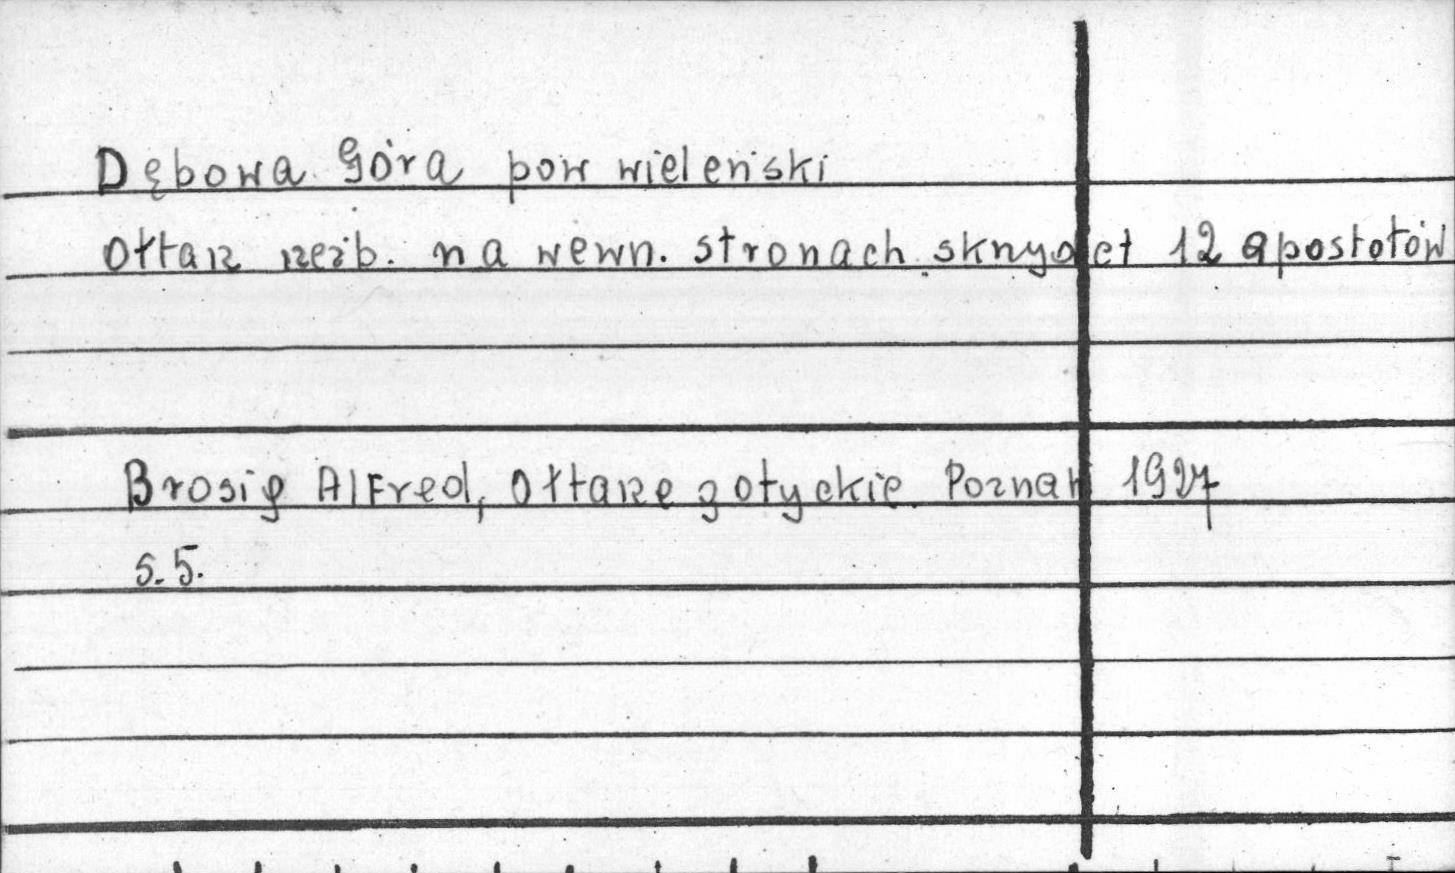 Dębowa Góra pow wieleński
Ołtarz rzeźb. na wewn. stronach skrzydeł 12 apostołów
Brosig Alfred, Ołtarze gotyckie. Poznań 1927
s. 5.